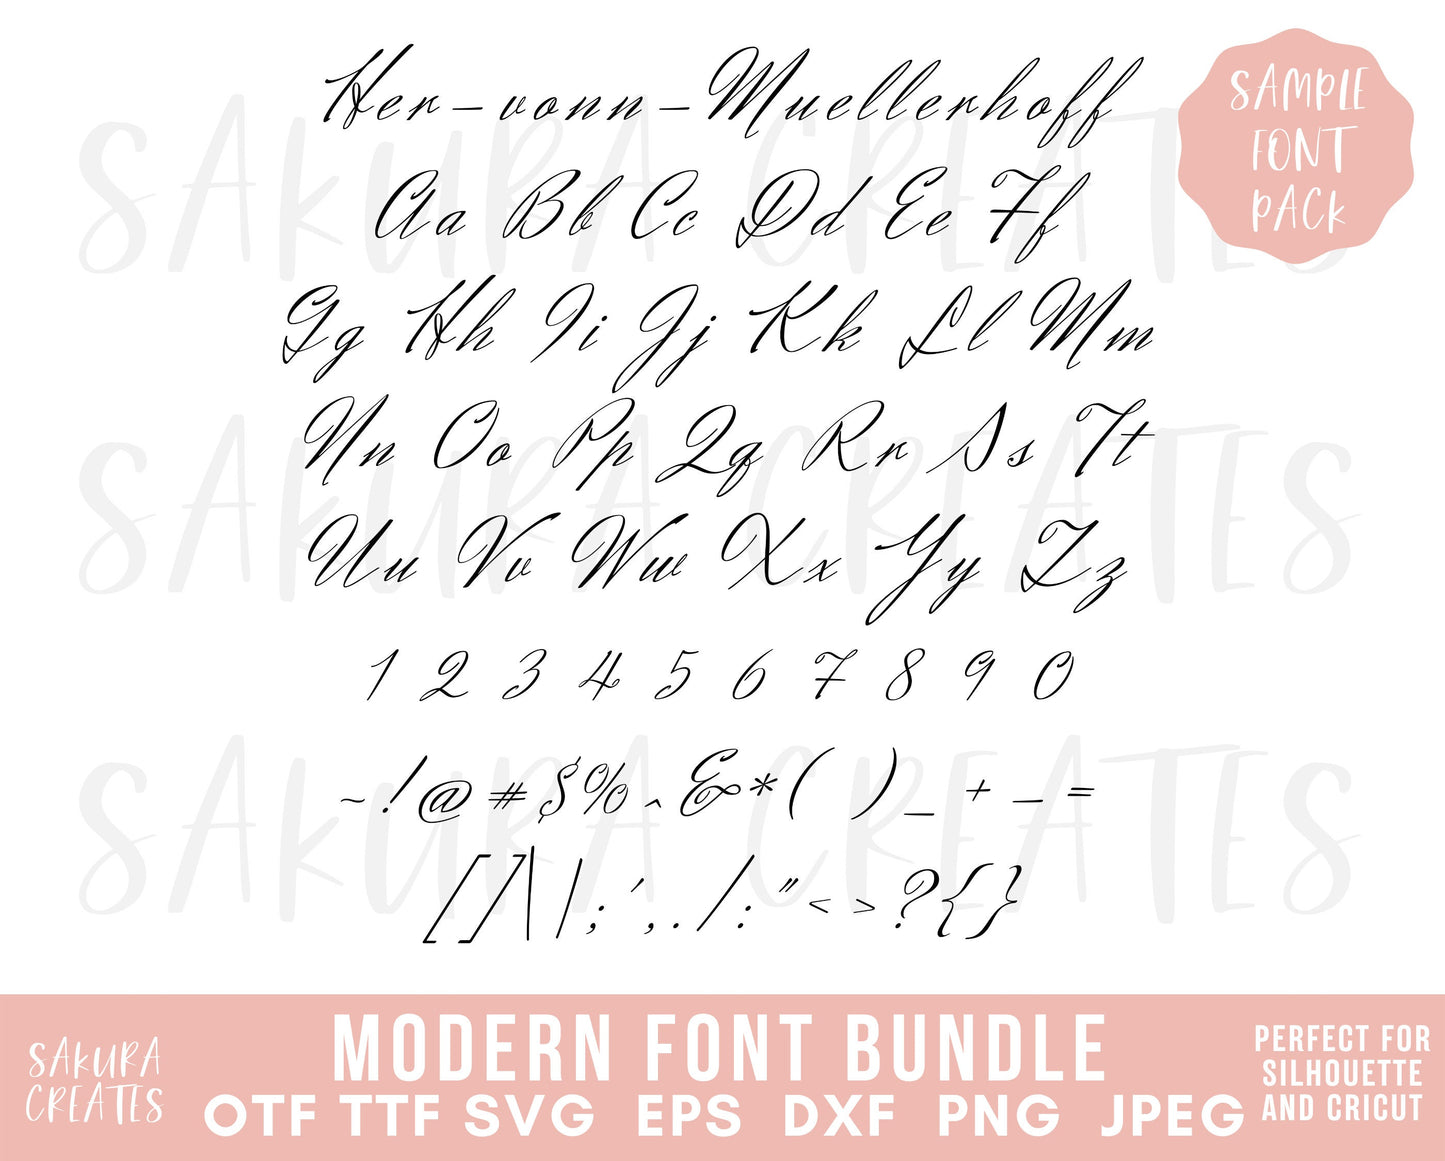 Her-vonn-Muellerhoff
SAMPLE
FONT
PACK
SAKURA CREATES
Aa Bb Cc Dd Ee Ff
Gg Hh Ii Jj Kk Ll Mm
Nn Oo Pp Qq Rr Ss Tt
SAKURA CREATES
Uu Vv Ww Xx Yy Zz
1 2 3 4 5 6 7 8 9 0
~!@#$%^&*( )_+-=
SAKURA CREATES
[]\|;',./:"<>?{}
SAKURA
CREATES
MODERN FONT BUNDLE
OTF TTF SVG EPS DXF PNG JPEG
PERFECT FOR
SILHOUETTE
AND CRICUT